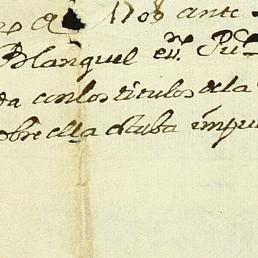 1708 ante
Blanquel en. Pu
da con los titulos de la
obre ella estaba impu